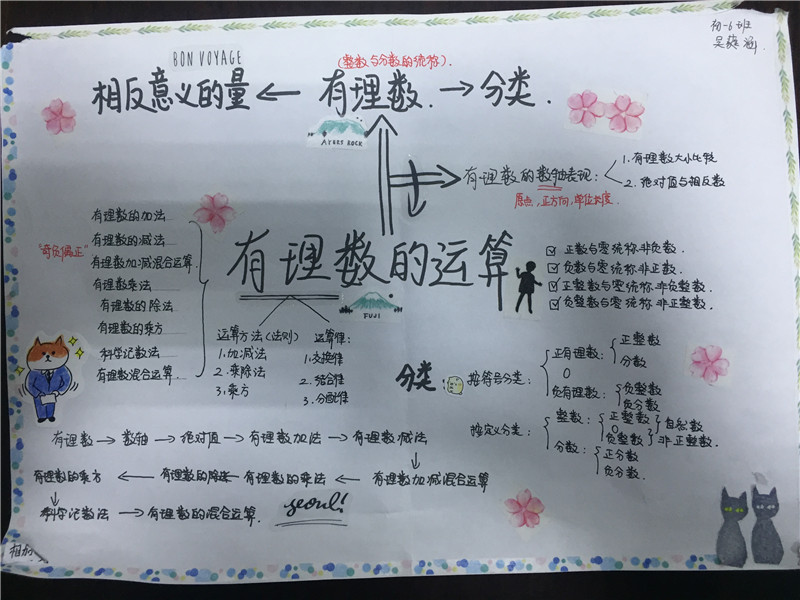 初一6班
吴蕤涵
BON VOYAGE
(整数与分数的统称).
相反意义的量 ← 有理数. → 分类.
AYERS ROCK
有理数的数轴表现:
1.有理数大小比较
2.绝对值与相反数
原点,正方向,单位长度.
有理数的加法
有理数的减法
有理数加减混合运算.
有理数乘法
有理数的除法
有理数的乘方
科学记数法
有理数混合运算.
"奇负偶正"
有理数的运算
FUJI
☑ 正数与零统称非负数.
☑ 负数与零统称非正数.
☑ 正整数与零统称非负整数.
☑ 负整数与零统称非正整数.
运算方法(法则)
1.加减法
2.乘除法
3.乘方
运算律:
1.交换律
2.结合律
3.分配律
分类:
按符号分类:
正有理数:
正整数
分数
0
负有理数:
负整数
负分数
按定义分类:
整数:
正整数
0
负整数
自然数
非正整数.
分数:
正分数
负分数.
有理数 → 数轴 → 绝对值 → 有理数加法 → 有理数减法
有理数的乘方 ← 有理数的除法 ← 有理数的乘法 ← 有理数加减混合运算
科学记数法 → 有理数的混合运算.
seoul!